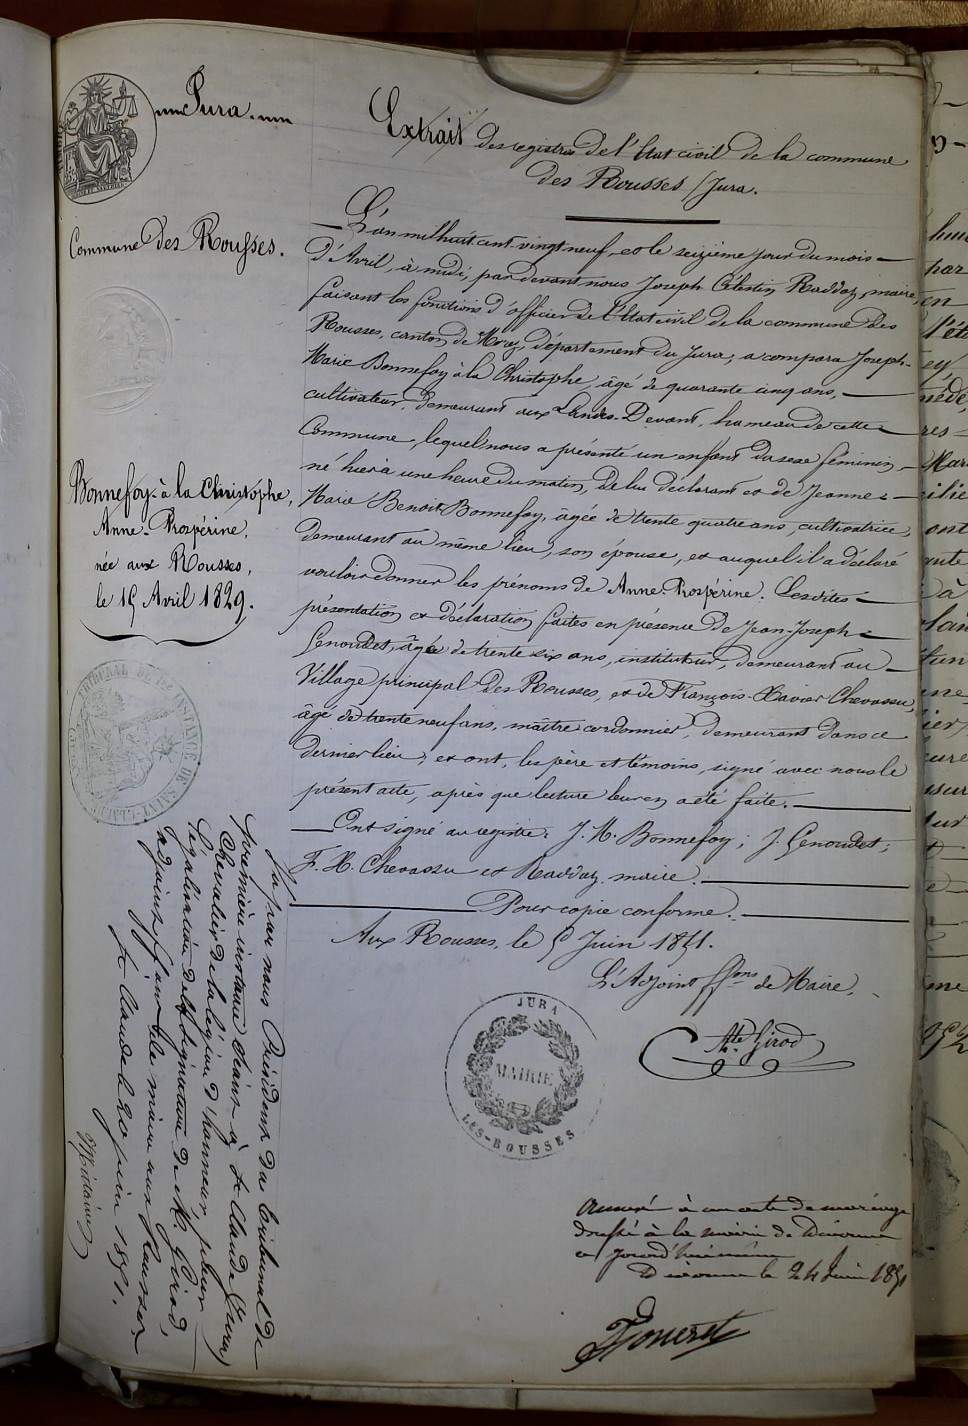 Jura.
Commune Des Rousses.
Bonnefoy-à la Christophe,
Anne-Prospérine,
née aux Rousses,
le 15 Avril 1829.
Extrait des registres de l'Etat civil de la commune
des Rousses /Jura.
L'an mil huit cent vingt neuf, et le seizième jour du mois
D'Avril, à midi, par devant nous Joseph Célestin Raddaz, maire,
faisant les fonctions d'officier de l'Etat civil de la commune des
Rousses, canton de Morez, département du Jura, a comparu Joseph-
Marie Bonnefoy à la Christophe, âgé de quarante cinq ans,
cultivateur, demeurant aux Landes-Devant, hameau de cette
Commune, lequel nous a présenté un enfant du sexe féminin
né hier à une heure du matin, de lui déclarant et de Jeanne-
Marie Benoit Bonnefoy, âgée de trente quatre ans, cultivatrice,
demeurant au même lieu, son épouse, et auquel il a déclaré
vouloir donner les prénoms de Anne-Prospérine. Lesdites
présentation et déclaration faites en présence de Jean-Joseph
Lenoudet, âgé de trente six ans, instituteur, demeurant au
Village principal des Rousses, et de François-Xavier Chevassu,
âgé de trente neuf ans, maître cordonnier, demeurant dans ce
dernier lieu; et ont, les père et témoins, signé avec nous le
présent acte, après que lecture leur en a été faite.
Ont signé au registre: J. M. Bonnefoy; J. Lenoudet;
F. X. Chevassu et Raddaz, maire.
Pour copie conforme.
Aux Rousses, le 5 Juin 1851.
L'Adjoint ffons de Maire,
Girod
JURA
MAIRIE
LES-ROUSSES
TRIBUNAL DE 1re INSTANCE DE SAINT-CLAUDE
Vu par nous Président du tribunal de
première instance séant à St Claude (Jura)
Chevalier de la légion d'honneur, pour
légalisation de la signature de M. Girod,
adjoint ffons de maire aux Rousses
St Claude le 20 juin 1851.
annexé à un acte de mariage
dressé à la mairie de Divonne
ce jourd'hui
Divonne le 24 Juin 1851